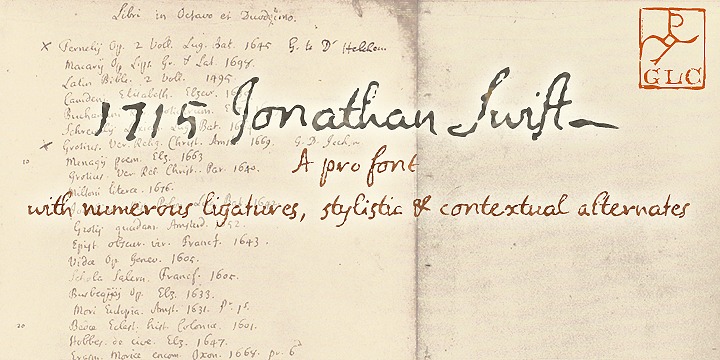 Libri in Octavo et Duodecimo.
x Fernelij Op. 2 Voll. Lug. Bat. 1645 G. to Dr
Macarij Op Lips. Gr. & Lat. 1698.
Latin Bible. 2 Voll. 1495.
Camden Elizabeth. Elzev.
Bat.
x Grotius Ver. Relig. Christ. Amst. 1669. G. D.
10 Menagij poem. Elz. 1663
Grotius Ver Rel. Christ. Par. 1640.
Miltoni literæ. 1676.
Grotij quædam. Amstelod.
Epist obscur. vir. Francf. 1643.
Vidæ Op. Genev. 1605.
Schola Salern. Francf. 1605.
Busbequij Op. Elz. 1633.
Mori Eutopia. Amst. 1631. Pr. 1s.
20 Bedæ Eclest. hist. Coloniæ. 1601.
Hobbes de cive. Elz. 1647.
Erasm. Moriæ encom. Oxon. 1668. pr. 6d
1715 Jonathan Swift
A pro font
with numerous ligatures, stylistic & contextual alternates
GLC